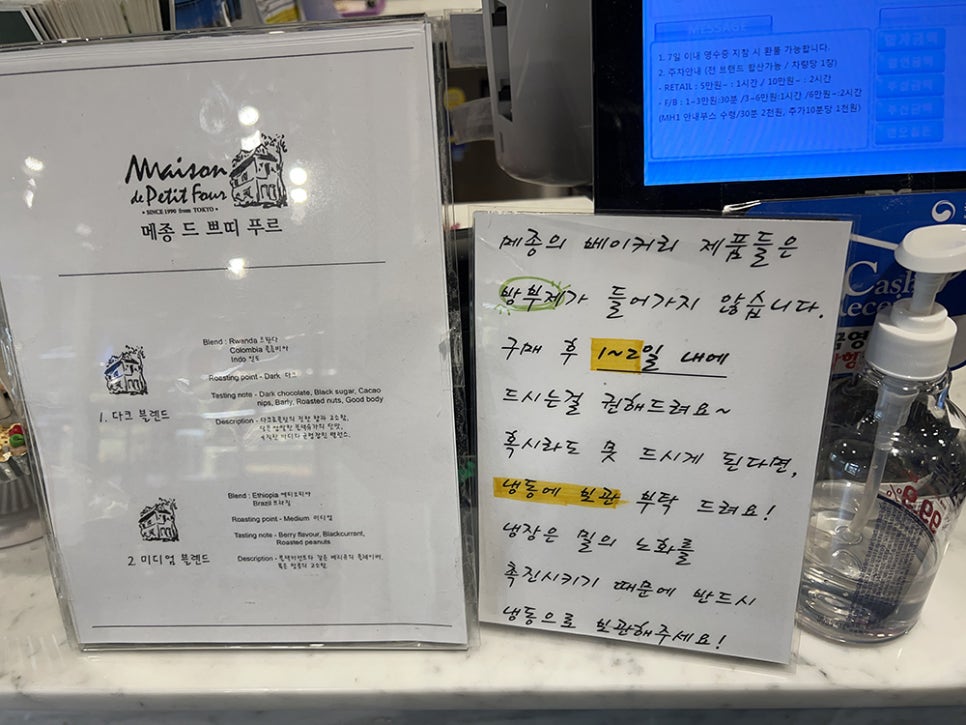 Maison
de Petit Four
• SINCE 1990 from TOKYO •
메종 드 쁘띠 푸르
Blend : Rwanda 르완다
Colombia 콜롬비아
Indo 인도
Roasting point - Dark 다크
Tasting note - Dark chocolate, Black sugar, Cacao
nips, Barly, Roasted nuts, Good body
Description - 다크초콜릿의 진한 향과 고소함,
1. 다크 블렌드
Blend : Ethiopia 에티오피아
Brazil 브라질
Roasting point - Medium 미디엄
Tasting note - Berry flavour, Blackcurrant,
Roasted peanuts
Description - 블랙커런트와 같은 베리류의 플레이버,
볶은 땅콩의 고소함.
2. 미디엄 블렌드
메종의 베이커리 제품들은
방부제가 들어가지 않습니다.
구매 후 1~2일 내에
드시는걸 권해드려요~
혹시라도 못 드시게 된다면,
냉동에 보관 부탁 드려요!
냉장은 밀의 노화를
촉진시키기 때문에 반드시
냉동으로 보관해주세요!
MESSAGE
1. 7일 이내 영수증 지참 시 환불 가능합니다.
2. 주차안내 (전 브랜드 합산가능 / 차량당 1장)
- RETAIL : 5만원~ : 1시간 / 10만원~ : 2시간
- F/B : 1~3만원:30분 /3~6만원:1시간 /6만원~:2시간
(MH1 안내부스 수령/30분 2천원, 추가10분당 1천원)
합계금액
할인금액
Cash